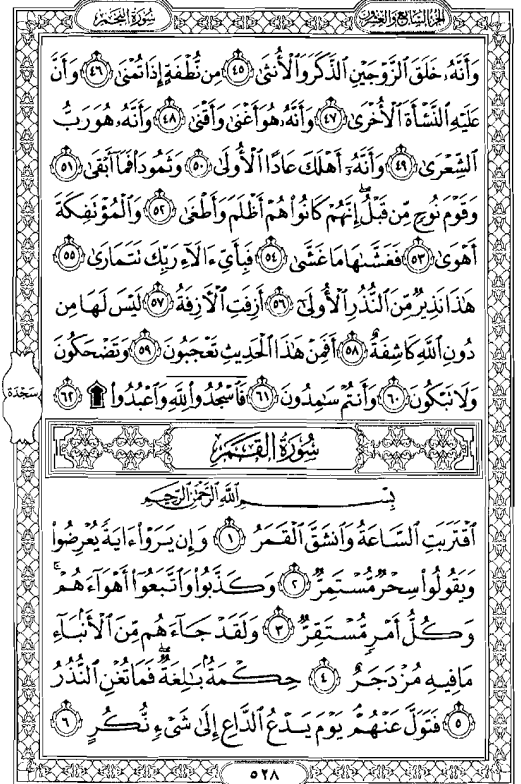 الجزء السابع والعشرون سُورَةُ النَّجْمِ
وَأَنَّهُۥ خَلَقَ ٱلزَّوْجَيْنِ ٱلذَّكَرَ وَٱلْأُنثَىٰ ٤٥ مِن نُّطْفَةٍ إِذَا تُمْنَىٰ ٤٦ وَأَنَّ
عَلَيْهِ ٱلنَّشْأَةَ ٱلْأُخْرَىٰ ٤٧ وَأَنَّهُۥ هُوَ أَغْنَىٰ وَأَقْنَىٰ ٤٨ وَأَنَّهُۥ هُوَ رَبُّ
ٱلشِّعْرَىٰ ٤٩ وَأَنَّهُۥٓ أَهْلَكَ عَادًا ٱلْأُولَىٰ ٥٠ وَثَمُودَا۟ فَمَآ أَبْقَىٰ ٥١
وَقَوْمَ نُوحٍ مِّن قَبْلُ ۖ إِنَّهُمْ كَانُوا۟ هُمْ أَظْلَمَ وَأَطْغَىٰ ٥٢ وَٱلْمُؤْتَفِكَةَ
أَهْوَىٰ ٥٣ فَغَشَّىٰهَا مَا غَشَّىٰ ٥٤ فَبِأَىِّ ءَالَآءِ رَبِّكَ تَتَمَارَىٰ ٥٥
هَٰذَا نَذِيرٌ مِّنَ ٱلنُّذُرِ ٱلْأُولَىٰٓ ٥٦ أَزِفَتِ ٱلْأَزِفَةُ ٥٧ لَيْسَ لَهَا مِن
دُونِ ٱللَّهِ كَاشِفَةٌ ٥٨ أَفَمِنْ هَٰذَا ٱلْحَدِيثِ تَعْجَبُونَ ٥٩ وَتَضْحَكُونَ
وَلَا تَبْكُونَ ٦٠ وَأَنتُمْ سَٰمِدُونَ ٦١ فَٱسْجُدُوا۟ لِلَّهِ وَٱعْبُدُوا۟ ۩ ٦٢
سَجْدَة
سُورَةُ القَمَرِ
بِسْمِ ٱللَّهِ ٱلرَّحْمَٰنِ ٱلرَّحِيمِ
ٱقْتَرَبَتِ ٱلسَّاعَةُ وَٱنشَقَّ ٱلْقَمَرُ ١ وَإِن يَرَوْا۟ ءَايَةً يُعْرِضُوا۟
وَيَقُولُوا۟ سِحْرٌ مُّسْتَمِرٌّ ٢ وَكَذَّبُوا۟ وَٱتَّبَعُوٓا۟ أَهْوَآءَهُمْ ۚ
وَكُلُّ أَمْرٍ مُّسْتَقِرٌّ ٣ وَلَقَدْ جَآءَهُم مِّنَ ٱلْأَنۢبَآءِ
مَا فِيهِ مُزْدَجَرٌ ٤ حِكْمَةٌۢ بَٰلِغَةٌ ۖ فَمَا تُغْنِ ٱلنُّذُرُ
٥ فَتَوَلَّ عَنْهُمْ ۘ يَوْمَ يَدْعُ ٱلدَّاعِ إِلَىٰ شَىْءٍ نُّكُرٍ ٦
٥٢٨